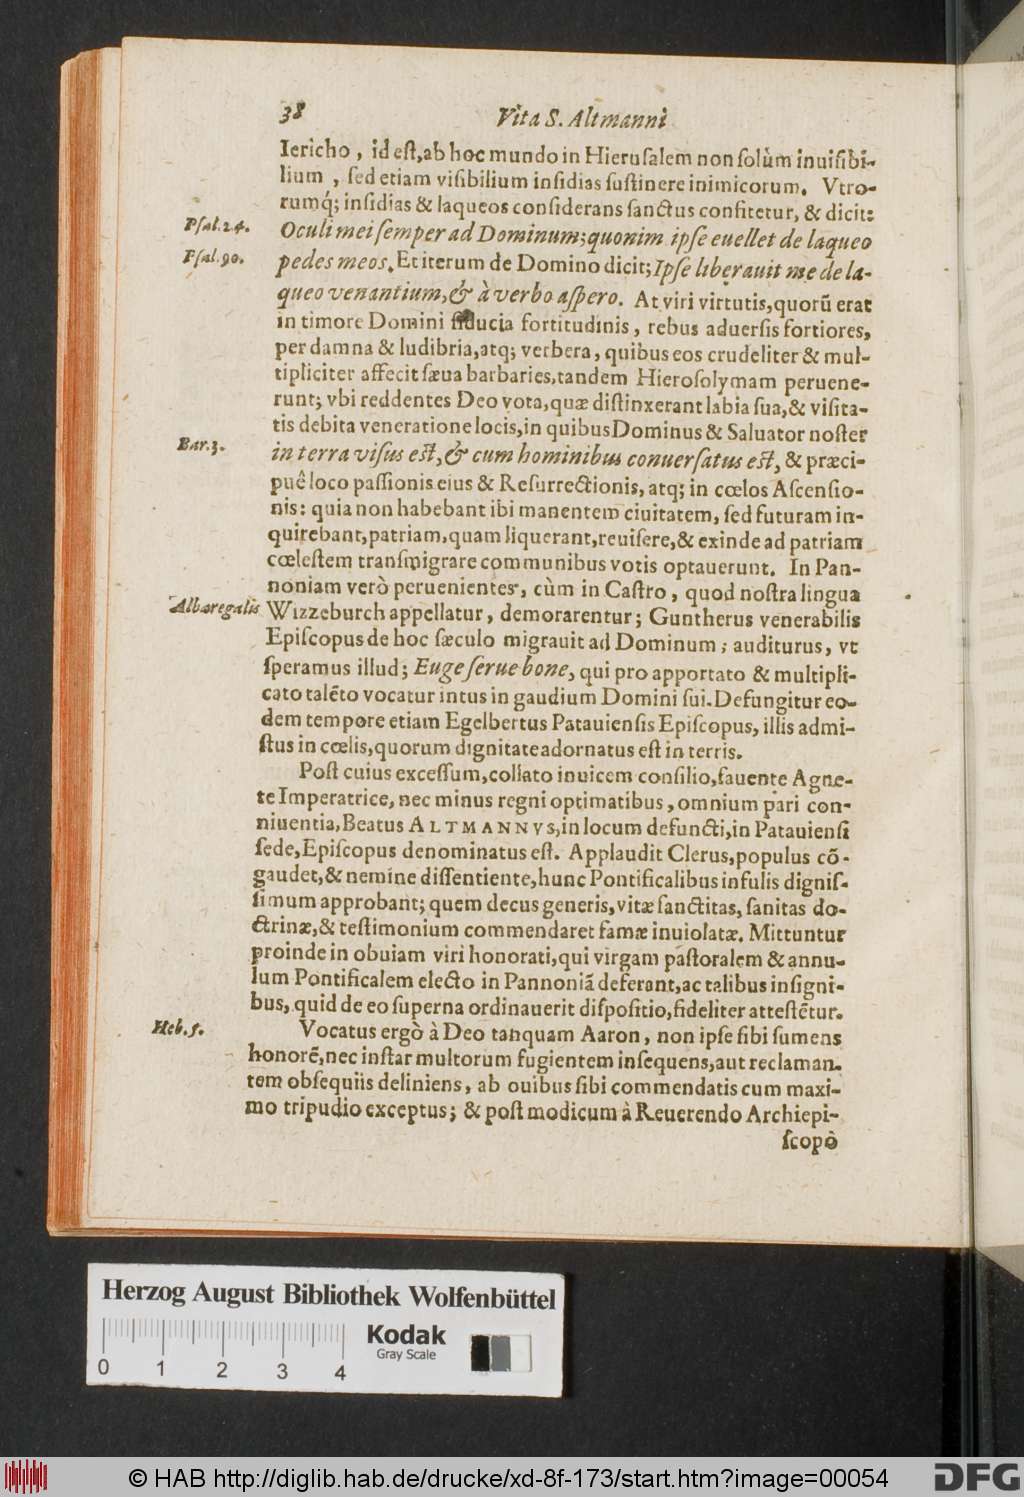 38 Vita S. Altmanni
Iericho, id eſt, ab hoc mundo in Hieruſalem non ſolùm inuiſibi-
lium, ſed etiam viſibilium inſidias ſuſtinere inimicorum. Vtro-
rumq́; inſidias & laqueos conſiderans ſanctus confitetur, & dicit:
Pſal. 24. Oculi mei ſemper ad Dominum; quonim ipſe euellet de laqueo
Pſal. 90. pedes meos. Et iterum de Domino dicit; Ipſe liberauit me de la-
queo venantium, & à verbo aſpero. At viri virtutis, quorū erat
in timore Domini fiducia fortitudinis, rebus aduerſis fortiores,
per damna & ludibria, atq; verbera, quibus eos crudeliter & mul-
tipliciter affecit ſæua barbaries, tandem Hieroſolymam peruene-
runt; vbi reddentes Deo vota, quæ diſtinxerant labia ſua, & viſita-
tis debita veneratione locis, in quibus Dominus & Saluator noſter
Bar. 3. in terra viſus eſt, & cum hominibus conuerſatus eſt, & præci-
puê loco paſſionis eius & Reſurrectionis, atq; in cœlos Aſcenſio-
nis: quia non habebant ibi manentem ciuitatem, ſed futuram in-
quirebant, patriam, quam liquerant, reuiſere, & exinde ad patriam
cœleſtem tranſmigrare communibus votis optauerunt. In Pan-
noniam verò peruenientes, cùm in Caſtro, quod noſtra lingua
Alba regalis. Wizzeburch appellatur, demorarentur; Guntherus venerabilis
Epiſcopus de hoc ſæculo migrauit ad Dominum; auditurus, vt
ſperamus illud; Euge ſerue bone, qui pro apportato & multipli-
cato talēto vocatur intus in gaudium Domini ſui. Defungitur eo-
dem tempore etiam Egelbertus Patauienſis Epiſcopus, illis admi-
ſtus in cœlis, quorum dignitate adornatus eſt in terris.
Poſt cuius exceſſum, collato inuicem conſilio, fauente Agne-
te Imperatrice, nec minus regni optimatibus, omnium pari con-
niuentia, Beatus ALTMANNVS, in locum defuncti, in Patauienſi
ſede, Epiſcopus denominatus eſt. Applaudit Clerus, populus cō-
gaudet, & nemine diſſentiente, hunc Pontificalibus infulis digniſ-
ſimum approbant; quem decus generis, vitæ ſanctitas, ſanitas do-
ctrinæ, & teſtimonium commendaret famæ inuiolatæ. Mittuntur
proinde in obuiam viri honorati, qui virgam paſtoralem & annu-
lum Pontificalem electo in Pannoniā deferant, ac talibus inſigni-
bus, quid de eo ſuperna ordinauerit diſpoſitio, fideliter atteſtētur.
Heb. 5. Vocatus ergò à Deo tanquam Aaron, non ipſe ſibi ſumens
honorē, nec inſtar multorum fugientem inſequens, aut reclaman-
tem obſequiis deliniens, ab ouibus ſibi commendatis cum maxi-
mo tripudio exceptus; & poſt modicum à Reuerendo Archiepi-
ſcopò
Herzog August Bibliothek Wolfenbüttel
0 1 2 3 4
Kodak
Gray Scale
© HAB http://diglib.hab.de/drucke/xd-8f-173/start.htm?image=00054
DFG